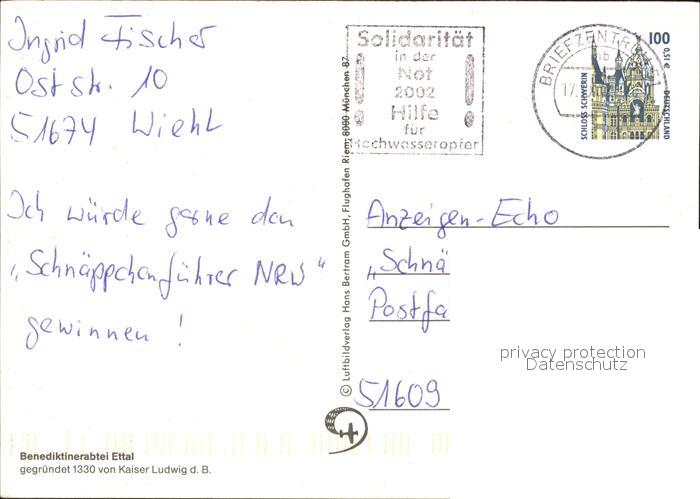 Ingrid Fischer
Oststr. 10
51674 Wiehl
Ich würde gerne den
„Schnäppchenführer NRW"
gewinnen !
Benediktinerabtei Ettal
gegründet 1330 von Kaiser Ludwig d. B.
© Luftbildverlag Hans Bertram GmbH, Flughafen Riem, 8000 München 87
Solidarität
in der
Not
2002
Hilfe
für
Hochwasseropfer
BRIEFZENTRUM
17.
100
0,51 €
SCHLOSS SCHWERIN
DEUTSCHLAND
Anzeigen-Echo
„Schnä
Postfa
51609
privacy protection
Datenschutz